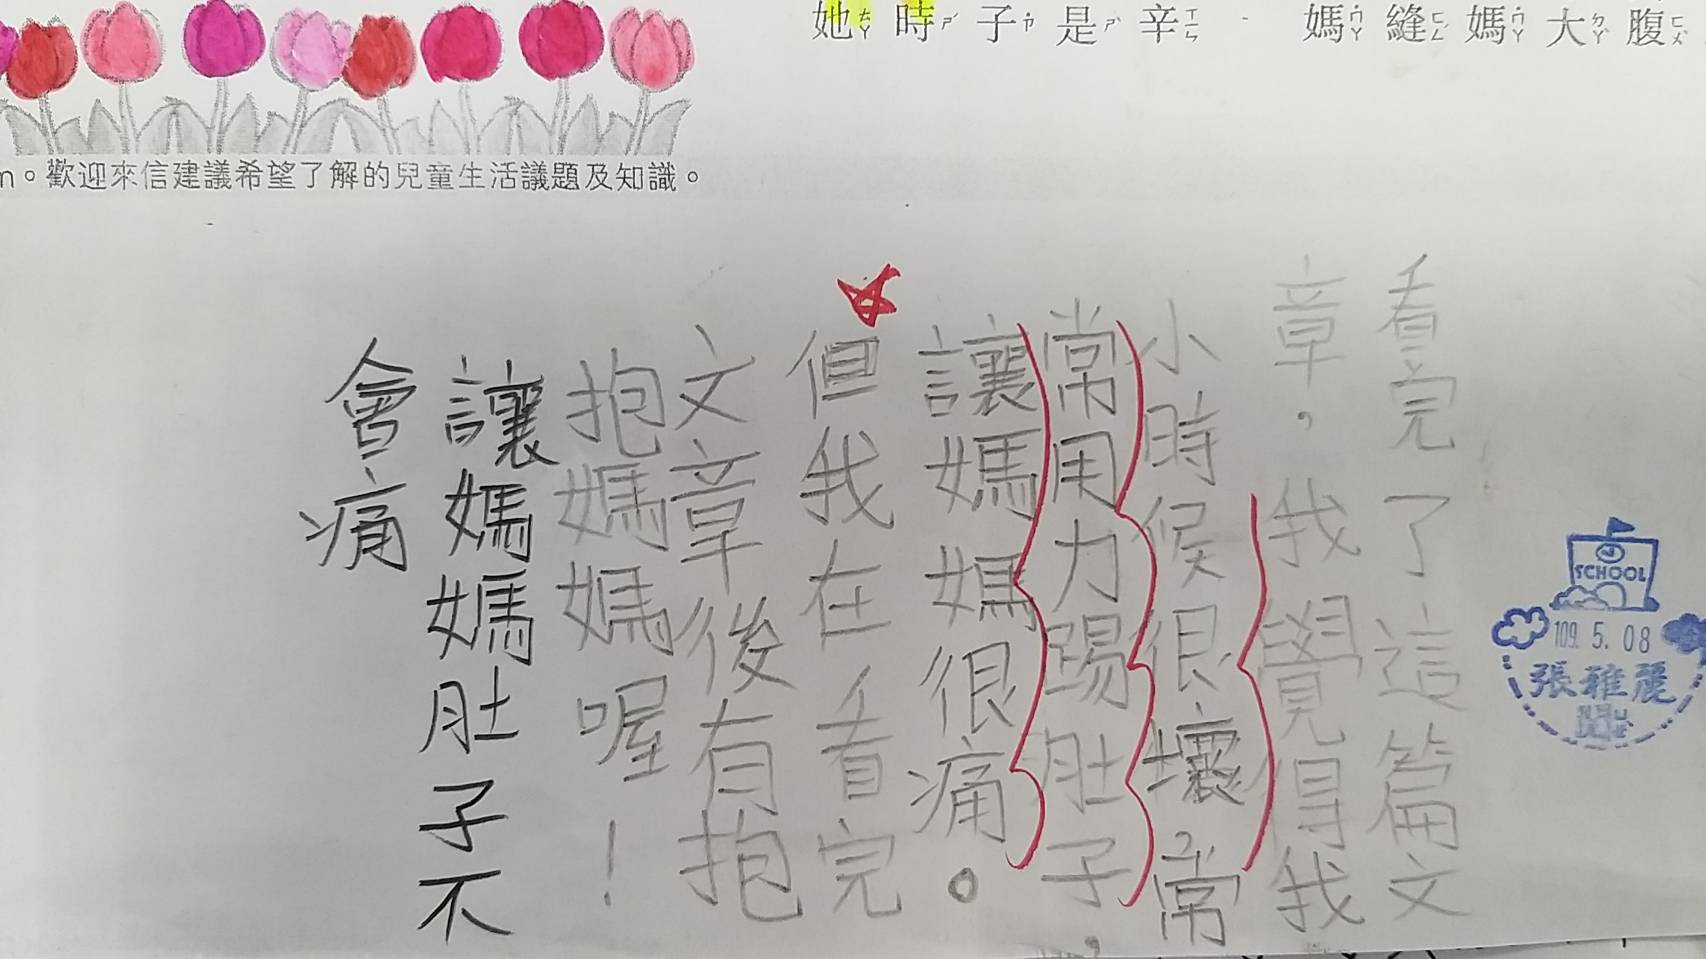 腹ㄈㄨˋ
大ㄉㄚˋ
媽ㄇㄚ
縫ㄈㄥˊ
媽ㄇㄚ
辛ㄒㄧㄣ
是ㄕˋ
子ㄗˇ
時ㄕˊ
她ㄊㄚ
m。歡迎來信建議希望了解的兒童生活議題及知識。
看完了這篇文
章,我覺得我
小時候很壞,常
常用力踢肚子,
讓媽媽很痛。
但我在看完
文章後有抱
抱媽媽喔!
讓媽媽肚子不
會痛
SCHOOL
109. 5. 08
張雅麗